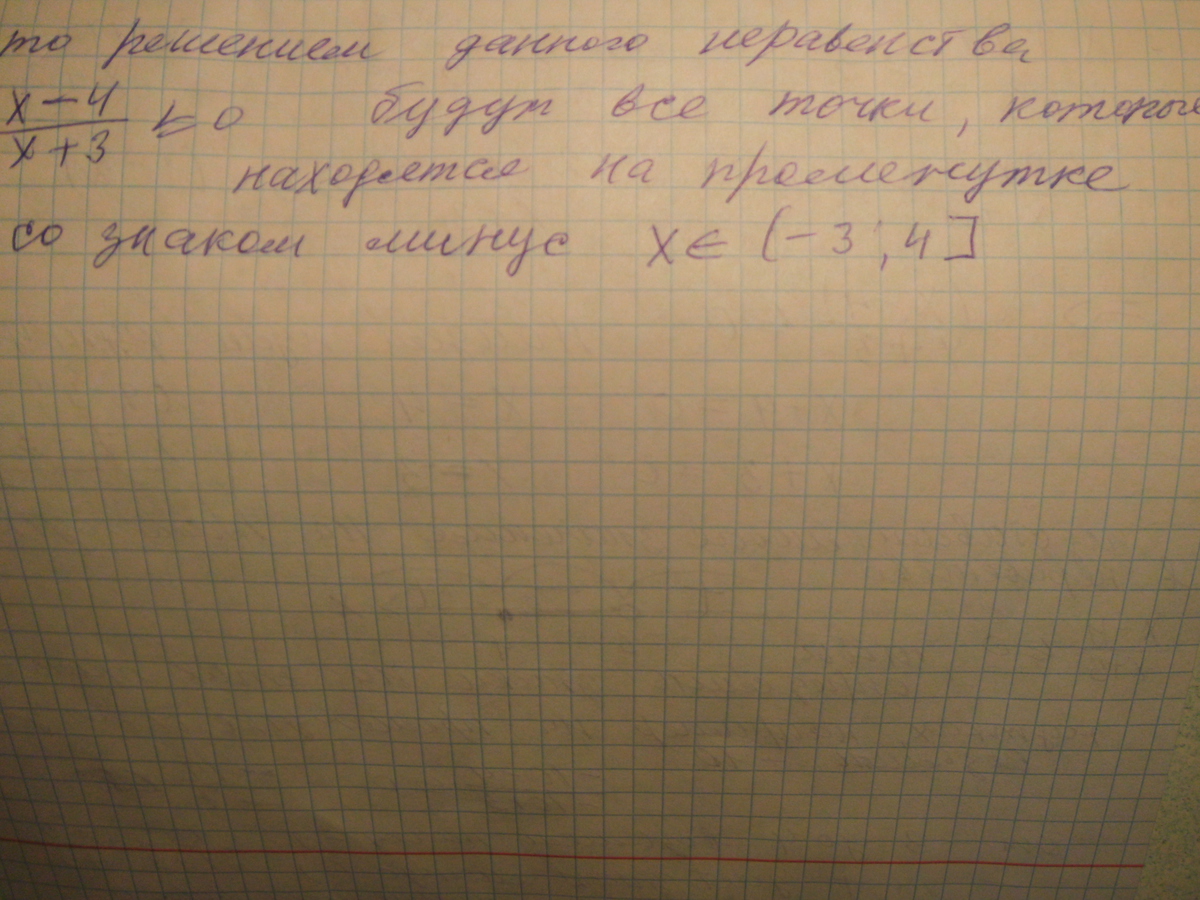 то решением данного неравенства
x-4/x+3 ≤ 0 будут все точки, которые
находятся на промежутке
со знаком минус x∈(-3; 4]